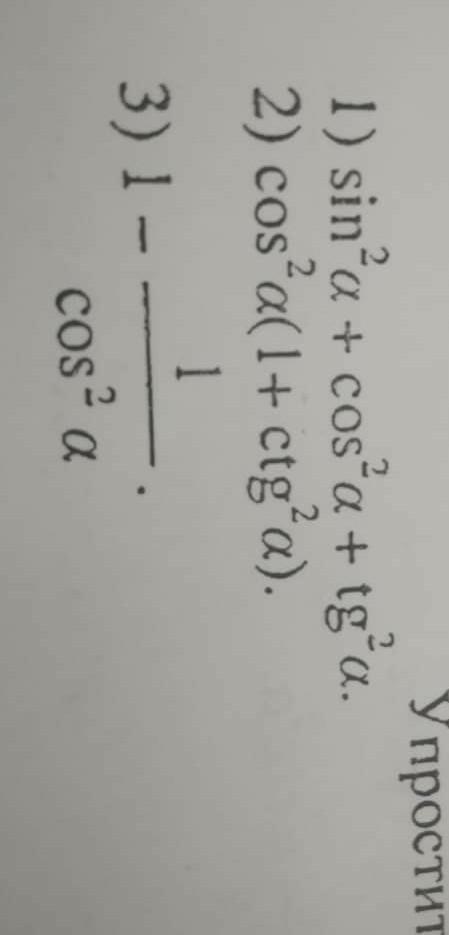 Упростит
1) sin²α + cos²α + tg²α.
2) cos²α(1 + ctg²α).
3) 1 − 1/cos²α.